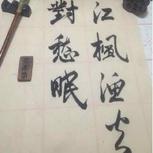 江楓漁火
對愁眠